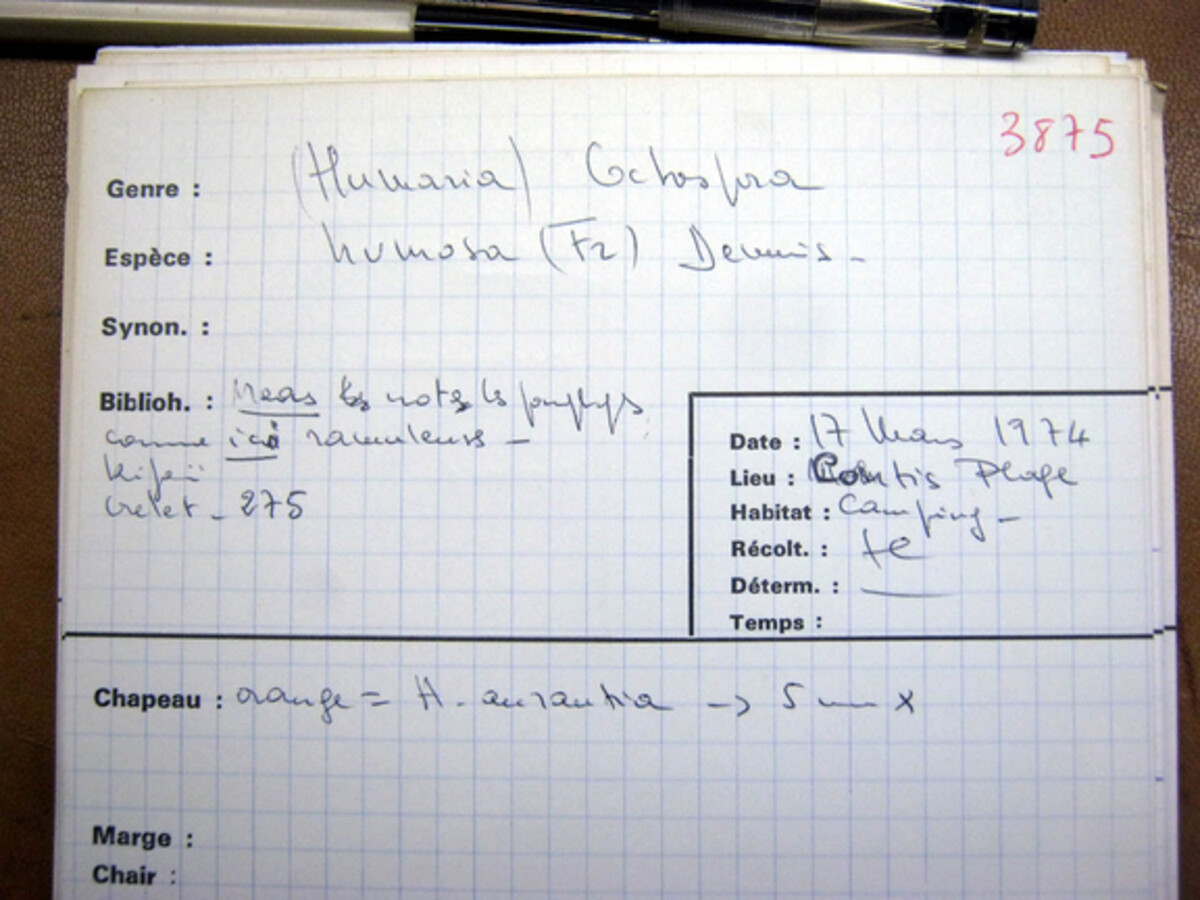 3875
Genre : (Humaria) Octospora
Espèce : humosa (Fr) Dennis -
Synon. :
Biblioh. : les notes les
comme ici -
- 275
Date : 17 Mars 1974
Lieu : Contis Plage
Habitat : Camping -
Récolt. :
Déterm. :
Temps :
Chapeau : orange = H. aurantia -> 5 mm x
Marge :
Chair :